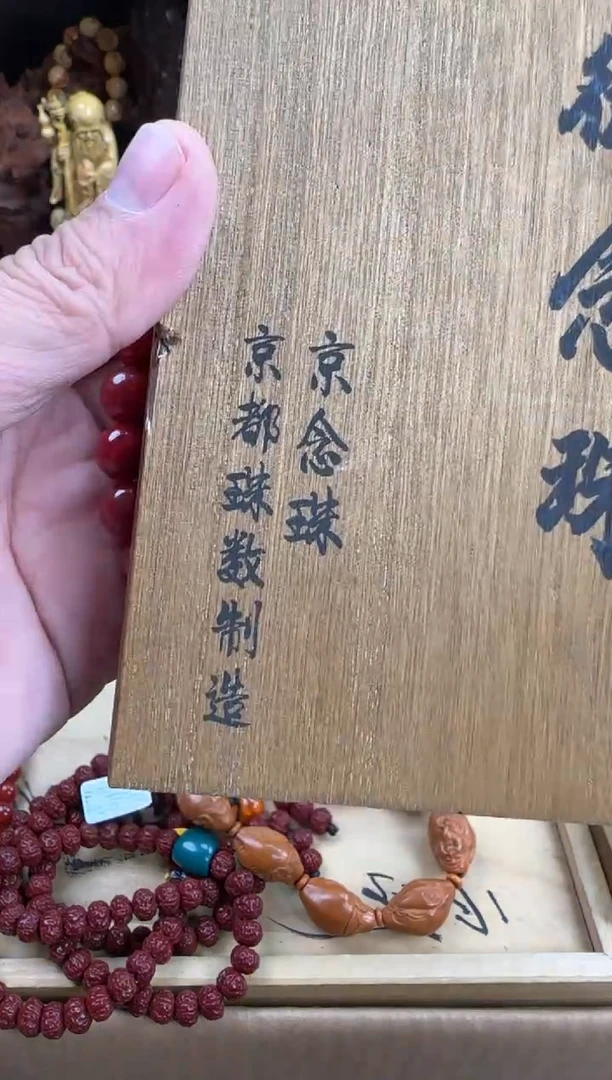 念珠
京念珠
京都珠数制造